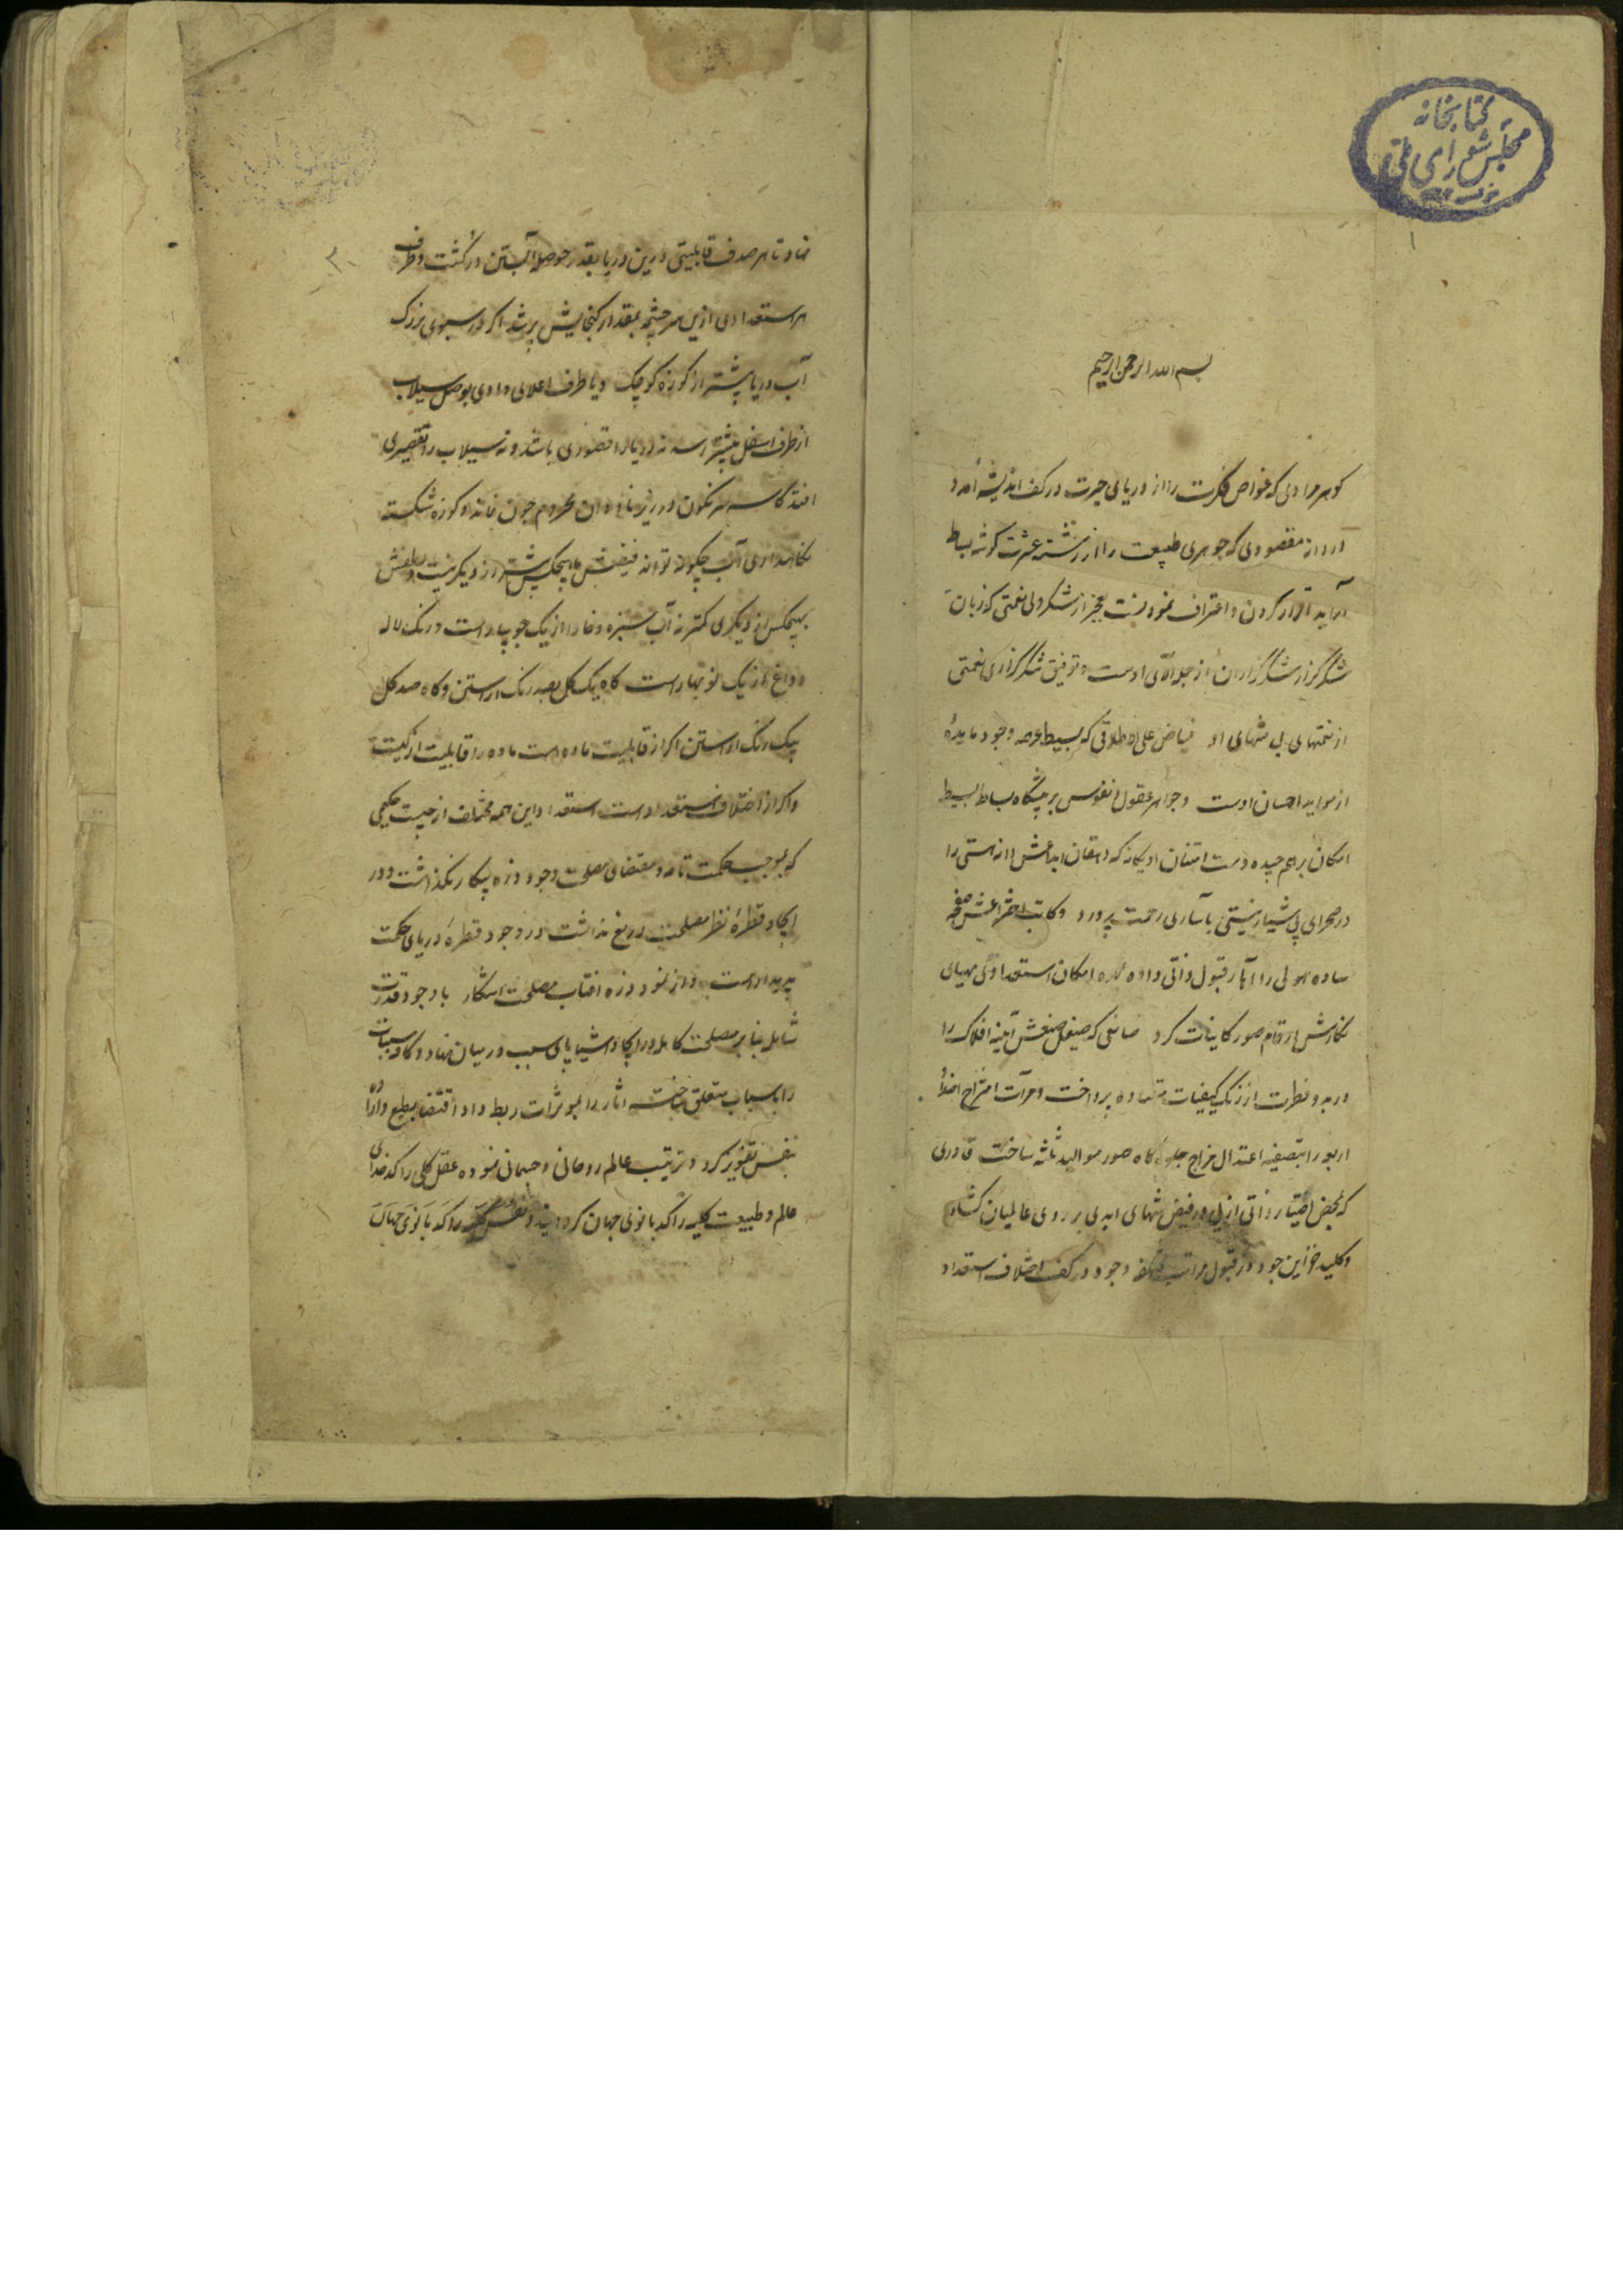 کتابخانه
مجلس شورای ملی
۱
بسم الله الرحمن الرحیم
کوهر مرادی که غواص فکرت را از دریای حیرت در کف اندیشه آمد و
دردانه مقصودی که جوهری طبیعت را از رشته عشرت کوشه بساط
آراید اقرار کردن و اعتراف نمودنست بعجز از شکر ولی نعمتی که زبان
شکرگزار شکرگزاران از جمله آلای اوست و توفیق شکرگزاری نعمتی
از نعمتهای بی منتهای او فیاض علی الاطلاقی که بسیط عرصه وجود مایدهٔ
از مواید احسان اوست و جواهر عقول و نفوس بر پیشگاه بساط البسیط
امکان برهم چیده دست امتنان او یکانه که دهقان ابداعش دانه هستی را
در صحرای بی شیار نیستی بآبیاری رحمت پرورد و کاتب اختراعش صفحه
ساده هیولی را آثار قبول ذاتی داده امکان استعدادی مهیای
نکارش ارقام صور کاینات کرد صانعی که صیقل صنعش آینه افلاک را
در بدو فطرت از زنک کیفیات متضاده پرداخت و مرآت امتزاج اضداد
اربعه را بتصفیه اعتدال مزاج جلوه کاه صور موالید ثلثه ساخت قادری
که بمحض اختیار ذاتی ازلی در فیض منتهای ابدی بر روی عالمیان کشاد
و کلید خزاین جود در قبول مراتب مختلفه وجود در کف اختلاف استعداد
۲
نهاد تا هر صدف قابلیتی درین دریا بقدر حوصله آبستن در کشت و ظرف
هر استعدادی ازین سرچشمه بمقدار کنجایش پر شد اکر در سبوی بزرک
آب دریا بیشتر از کوزه کوچک و یا طرف اعلای وادی بوصل سیلاب
از طرف اسفل بیشتر رسد نه دریا را قصوری باشد و نه سیلاب را تقصیری
افتد کاسه سرنکون در ریزش باران محروم چون نماند و کوزه شکسته
نکاهداری آب چکونه تواند فیضش بهیچکس بیشتر از دیکر نیست و لطفش
بهیچکس از دیکری کمتر نه آب سبزه و خار از یک جویبار است و رنک لاله
و داغ از یک نوبهار است کاه یک کل بصد رنک آراستن و کاه صد کل
بیک رنک آراستن اکر از قابلیت ماده است ماده را قابلیت از کیست
و اکر از اختلاف استعداد است استعداد این همه مختلف از چیست حکیمی
که بموجب حکمت تامه و مقتضای مصلحت وجود ذره بیکار نکذاشت و در
ایجاد قطرهٔ نظر مصلحت دریغ نداشت در وجود قطرهٔ دریای حکمت
پدیدار است و از نمود ذره آفتاب مصلحت آشکار با وجود قدرت
شامله بنا بر مصلحت کامله در ایجاد اشیا پای سبب در میان نهاد و کار مسببات
را باسباب متعلق ساخت آثار را بموثرات ربط داد اقتضا بطبع و ارادهٔ
بنفس تفویض کرد و ترتیب عالم روحانی و جسمانی نموده عقل کلی را کدخدای
عالم و طبیعت کلیه را کدبانوی جهان کردانید و نفس کلیه را کدبانوی جهان